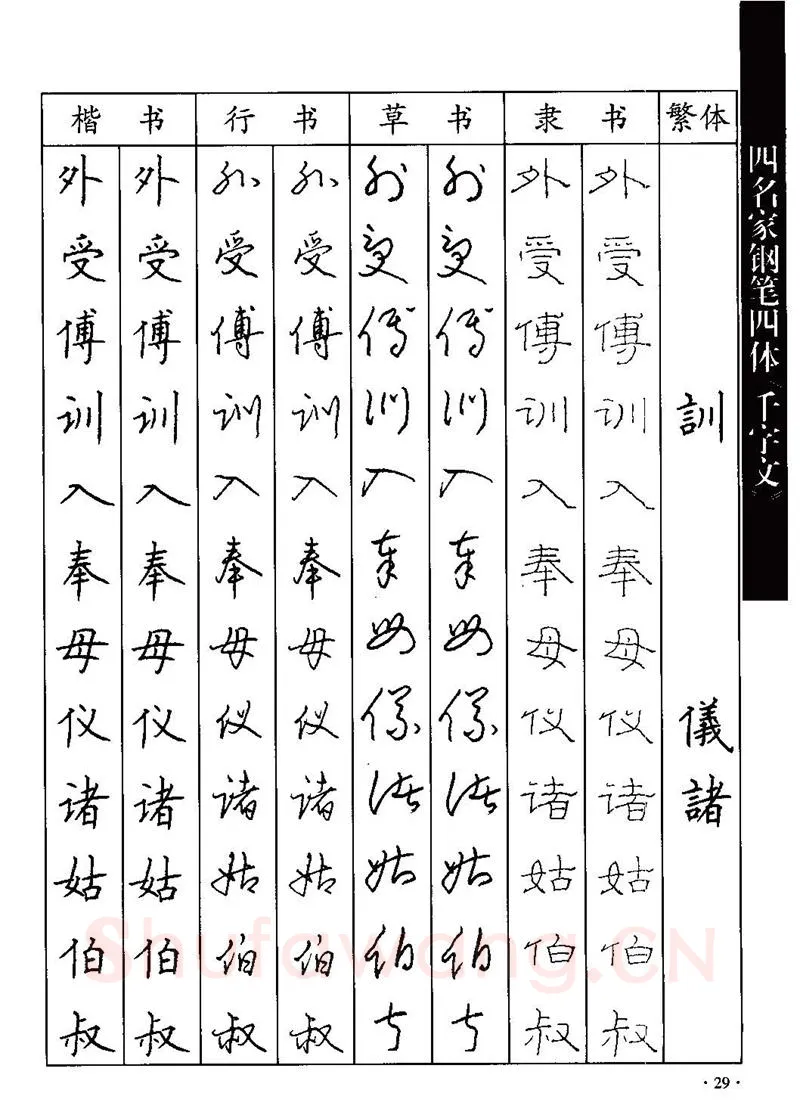 四名家钢笔四体《千字文》
楷书 行书 草书 隶书 繁体
外 外 外 外 外 外 外 外
受 受 受 受 受 受 受 受
傅 傅 傅 傅 傅 傅 傅 傅
训 训 训 训 训 训 训 训 訓
入 入 入 入 入 入 入 入
奉 奉 奉 奉 奉 奉 奉 奉
母 母 母 母 母 母 母 母
仪 仪 仪 仪 仪 仪 仪 仪 儀
诸 诸 诸 诸 诸 诸 诸 诸 諸
姑 姑 姑 姑 姑 姑 姑 姑
伯 伯 伯 伯 伯 伯 伯 伯
叔 叔 叔 叔 叔 叔 叔 叔
Shufawang.CN
·29·